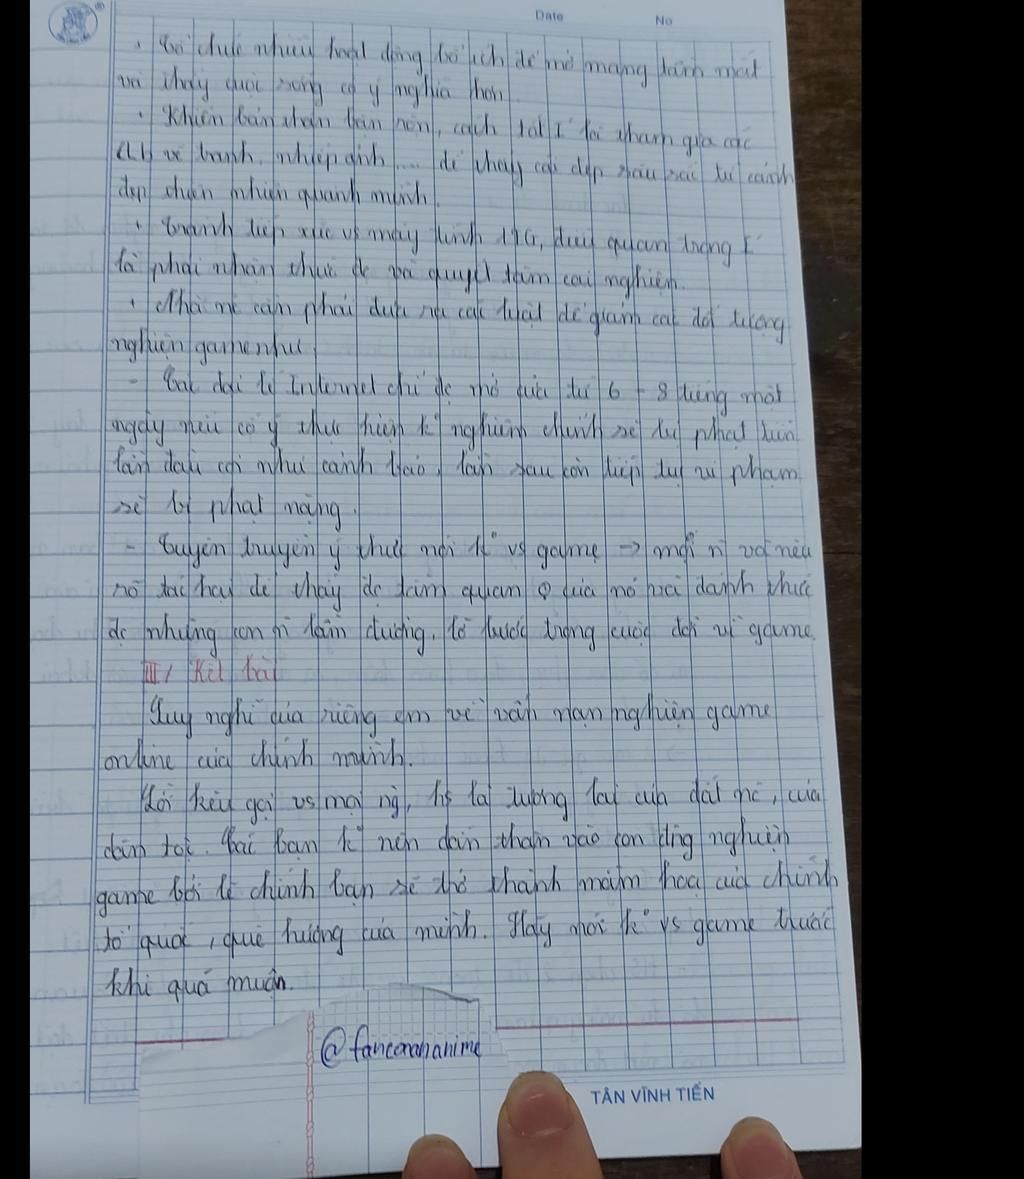 Date No
. Tổ chức nhiều hoạt động bổ ích để mở mang tầm mắt
và thấy cuộc sống có ý nghĩa hơn.
. Khiến bản thân bận rộn, cách tốt I là tham gia các
CLB vẽ tranh, nhiếp ảnh.... để thấy cái đẹp sâu sắc từ cảnh
đẹp thiên nhiên quanh mình.
. Tránh tiếp xúc vs máy tính, điều quan trọng I
là phải nhận thức đc và quyết tâm cai nghiện.
. Nhà nc cần phải đưa ra các luật để giảm các đối tượng
nghiện game như:
- Các đại lý Internet chỉ đc mở cửa từ 6 - 8 tiếng một
ngày nếu có ý thực hiện k nghiêm chỉnh sẽ xử phạt tiền
lần đầu coi như cảnh cáo, lần sau còn tiếp tục vi phạm
sẽ bị phạt nặng.
- Tuyên truyền ý thức nói k vs game → mối n và nêu
rõ tác hại để thấy đc tầm quan của nó và đánh thức
đc những con n lầm đường, lỡ bước trong cuộc đời vì game.
III/ Kết bài
Suy nghĩ của riêng em về vấn nạn nghiện game
online của chính mình.
Lời kêu gọi vs mọi ng, hs là tương lai của đất nc, của
dân tộc. Các bạn k nên dấn thân vào con đg nghiện
game bởi lẽ chính bạn sẽ trở thành mầm họa của chính
tổ quốc, quê hương của mình. Hãy nói k vs game trước
khi quá muộn.
@fanconananime
TÂN VĨNH TIẾN